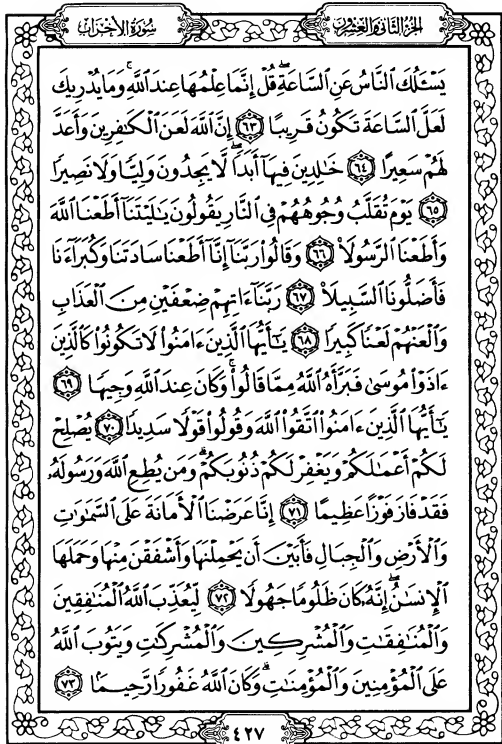 سُورَةُ الأَحْزَابِ
الجُزْءُ الثَّانِي وَالعِشْرُونَ
يَسْـَٔلُكَ ٱلنَّاسُ عَنِ ٱلسَّاعَةِۖ قُلْ إِنَّمَا عِلْمُهَا عِندَ ٱللَّهِۚ وَمَا يُدْرِيكَ
لَعَلَّ ٱلسَّاعَةَ تَكُونُ قَرِيبًا ٦٣ إِنَّ ٱللَّهَ لَعَنَ ٱلْكَٰفِرِينَ وَأَعَدَّ
لَهُمْ سَعِيرًا ٦٤ خَٰلِدِينَ فِيهَآ أَبَدًاۖ لَّا يَجِدُونَ وَلِيًّا وَلَا نَصِيرًا
٦٥ يَوْمَ تُقَلَّبُ وُجُوهُهُمْ فِى ٱلنَّارِ يَقُولُونَ يَٰلَيْتَنَآ أَطَعْنَا ٱللَّهَ
وَأَطَعْنَا ٱلرَّسُولَا۠ ٦٦ وَقَالُوا۟ رَبَّنَآ إِنَّآ أَطَعْنَا سَادَتَنَا وَكُبَرَآءَنَا
فَأَضَلُّونَا ٱلسَّبِيلَا۠ ٦٧ رَبَّنَآ ءَاتِهِمْ ضِعْفَيْنِ مِنَ ٱلْعَذَابِ
وَٱلْعَنْهُمْ لَعْنًا كَبِيرًا ٦٨ يَٰٓأَيُّهَا ٱلَّذِينَ ءَامَنُوا۟ لَا تَكُونُوا۟ كَٱلَّذِينَ
ءَاذَوْا۟ مُوسَىٰ فَبَرَّأَهُ ٱللَّهُ مِمَّا قَالُوا۟ۚ وَكَانَ عِندَ ٱللَّهِ وَجِيهًا ٦٩
يَٰٓأَيُّهَا ٱلَّذِينَ ءَامَنُوا۟ ٱتَّقُوا۟ ٱللَّهَ وَقُولُوا۟ قَوْلًا سَدِيدًا ٧٠ يُصْلِحْ
لَكُمْ أَعْمَٰلَكُمْ وَيَغْفِرْ لَكُمْ ذُنُوبَكُمْۗ وَمَن يُطِعِ ٱللَّهَ وَرَسُولَهُۥ
فَقَدْ فَازَ فَوْزًا عَظِيمًا ٧١ إِنَّا عَرَضْنَا ٱلْأَمَانَةَ عَلَى ٱلسَّمَٰوَٰتِ
وَٱلْأَرْضِ وَٱلْجِبَالِ فَأَبَيْنَ أَن يَحْمِلْنَهَا وَأَشْفَقْنَ مِنْهَا وَحَمَلَهَا
ٱلْإِنسَٰنُۖ إِنَّهُۥ كَانَ ظَلُومًا جَهُولًا ٧٢ لِّيُعَذِّبَ ٱللَّهُ ٱلْمُنَٰفِقِينَ
وَٱلْمُنَٰفِقَٰتِ وَٱلْمُشْرِكِينَ وَٱلْمُشْرِكَٰتِ وَيَتُوبَ ٱللَّهُ
عَلَى ٱلْمُؤْمِنِينَ وَٱلْمُؤْمِنَٰتِۗ وَكَانَ ٱللَّهُ غَفُورًا رَّحِيمًۢا ٧٣
٤٢٧